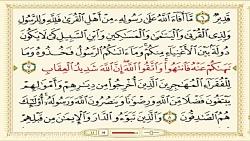 قَدِيرٌ ۝ مَّا أَفَاءَ اللَّهُ عَلَىٰ رَسُولِهِ مِنْ أَهْلِ الْقُرَىٰ فَلِلَّهِ وَلِلرَّسُولِ
وَلِذِي الْقُرْبَىٰ وَالْيَتَامَىٰ وَالْمَسَاكِينِ وَابْنِ السَّبِيلِ كَيْ لَا يَكُونَ
دُولَةً بَيْنَ الْأَغْنِيَاءِ مِنكُمْ وَمَا آتَاكُمُ الرَّسُولُ فَخُذُوهُ وَمَا
نَهَاكُمْ عَنْهُ فَانتَهُوا وَاتَّقُوا اللَّهَ إِنَّ اللَّهَ شَدِيدُ الْعِقَابِ ۝
لِلْفُقَرَاءِ الْمُهَاجِرِينَ الَّذِينَ أُخْرِجُوا مِن دِيَارِهِمْ وَأَمْوَالِهِمْ
يَبْتَغُونَ فَضْلًا مِّنَ اللَّهِ وَرِضْوَانًا وَيَنصُرُونَ اللَّهَ وَرَسُولَهُ أُولَٰئِكَ
هُمُ الصَّادِقُونَ ۝ وَالَّذِينَ تَبَوَّءُوا الدَّارَ وَالْإِيمَانَ مِن قَبْلِهِمْ